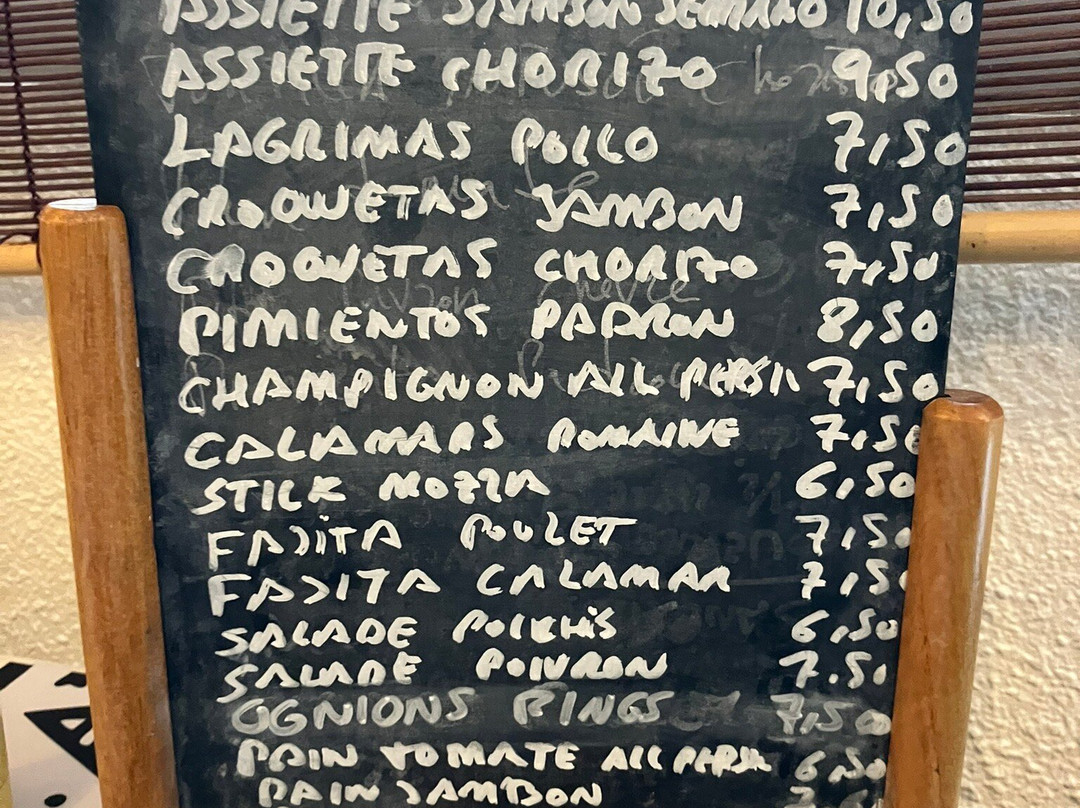 ASSIETTE JAMBON SERRANO 10,50
ASSIETTE CHORIZO 9,50
LAGRIMAS POLLO 7,50
CROQUETAS JAMBON 7,50
CROQUETAS CHORIZO 7,50
PIMIENTOS PADRON 8,50
CHAMPIGNON AIL PERSIL 7,50
CALAMARS ROMAINE 7,50
STICK MOZZA 6,50
FAJITA POULET 7,50
FAJITA CALAMAR 7,50
SALADE 6,50
SALADE POIVRON 7.50
OGNIONS RINGS 7,50
PAIN TOMATE AIL PERSIL 6,50
PAIN JAMBON